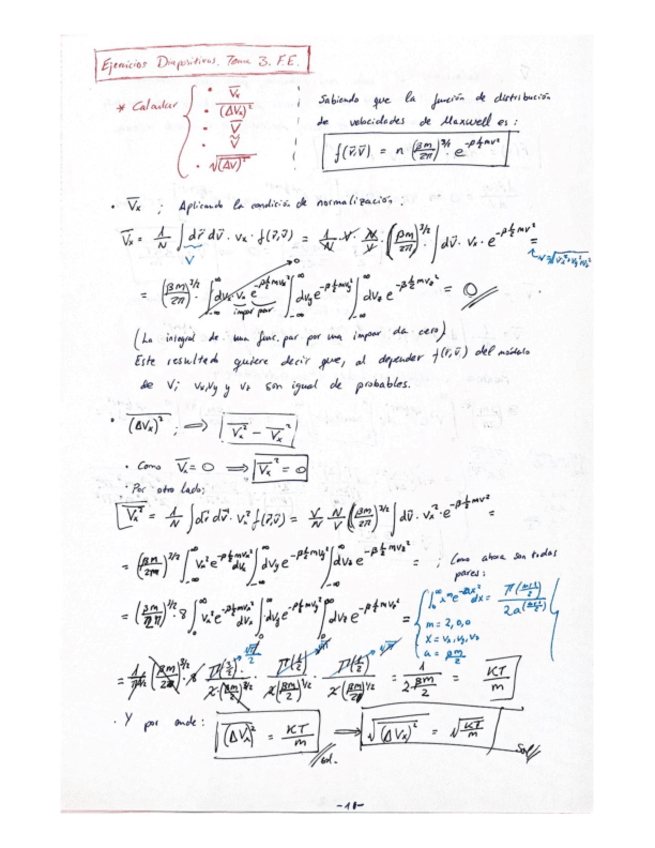 Ejercicios Diapositivas. Tema 3. F.E.
* Calcular { • V̅ₓ
• \overline{(ΔVₓ)²}
• V̅
• Ṽ
• √\overline{(ΔV)²}
Sabiendo que la función de distribución
de velocidades de Maxwell es:
f(r⃗,v⃗) = n (βm/2π)^{3/2} · e^{-β½mv²}
• V̅ₓ ; Aplicando la condición de normalización:
V̅ₓ = 1/N ∫ dr⃗ dv⃗ · vₓ · f(r⃗,v⃗) = 1/N · V · N/V · (βm/2π)^{3/2} · ∫ dv⃗ · vₓ · e^{-β½mv²} =
V
v=√(vₓ²+v_y²+v_z²)
= (βm/2π)^{3/2} · ∫_{-∞}^{∞} dvₓ · vₓ e^{-β½mvₓ²} ∫_{-∞}^{∞} dv_y e^{-β½mv_y²} ∫_{-∞}^{∞} dv_z e^{-β½mv_z²} = 0
impar par
(La integral de una func. par por una impar da cero)
Este resultado quiere decir que, al depender f(r⃗,v⃗) del módulo
de V; vₓ, v_y y v_z son igual de probables.
• \overline{(ΔVₓ)²} ; ⟹ \overline{Vₓ²} − V̅ₓ²
• Como V̅ₓ = 0 ⟹ V̅ₓ² = 0
• Por otro lado;
\overline{Vₓ²} = 1/N ∫ dr⃗ dv⃗ · vₓ² f(r⃗,v⃗) = V/N · N/V (βm/2π)^{3/2} ∫ dv⃗ · vₓ² · e^{-β½mv²} =
= (βm/2π)^{3/2} ∫_{-∞}^{∞} vₓ² e^{-β½mvₓ²} dvₓ ∫_{-∞}^{∞} dv_y e^{-β½mv_y²} ∫_{-∞}^{∞} dv_z e^{-β½mv_z²} = ; Como ahora son todas
pares:
= (βm/2π)^{3/2} · 8 ∫₀^∞ vₓ² e^{-β½mvₓ²} dvₓ · ∫₀^∞ dv_y e^{-β½mv_y²} ∫₀^∞ dv_z e^{-β½mv_z²} =
{ ∫₀^∞ x^m e^{-ax²} dx = Γ((m+1)/2) / 2a^{((m+1)/2)}
m = 2, 0, 0
X = vₓ, v_y, v_z
a = βm/2
= 1/π^{3/2} (βm/2)^{3/2} · 8 · Γ(3/2)/(2·(βm/2)^{3/2}) · Γ(1/2)/(2·(βm/2)^{1/2}) · Γ(1/2)/(2(βm/2)^{1/2}) = 1/(2·βm/2) = KT/m
√π/2 √π √π
• Y por ende: \overline{(ΔVₓ)²} = KT/m ⟹ √\overline{(ΔVₓ)²} = √(KT/m)
sol.
sol
-11-